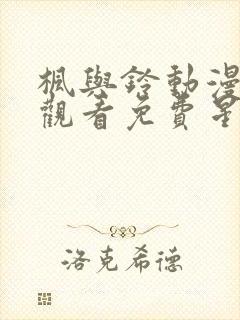 楓與鈴動漫
觀看免費星
洛克希德